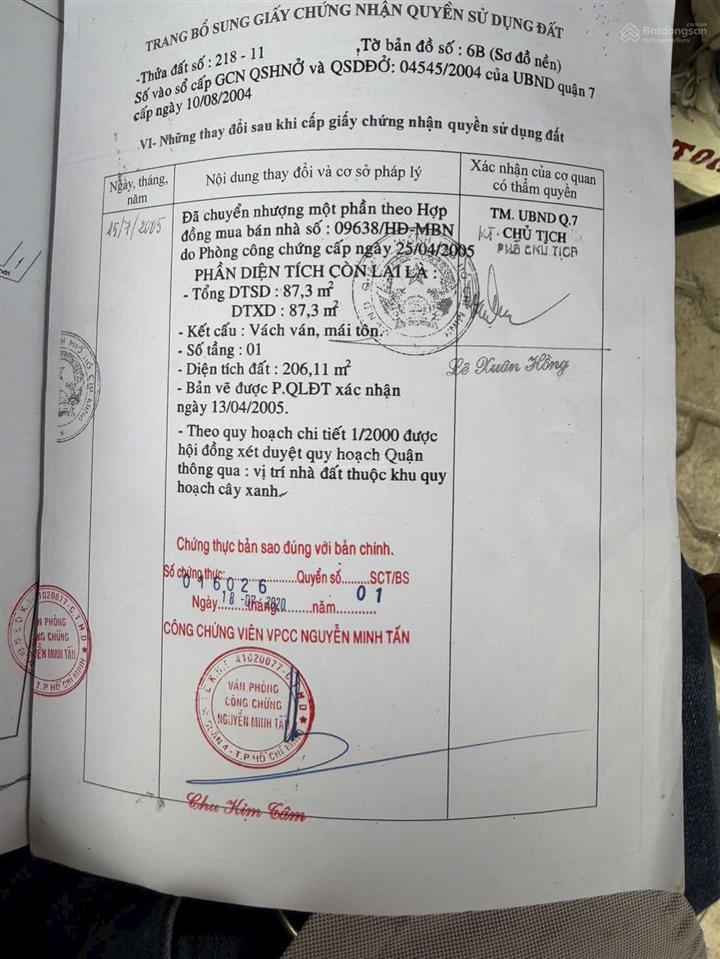 Batdongsan
by PropertyGuru
TRANG BỔ SUNG GIẤY CHỨNG NHẬN QUYỀN SỬ DỤNG ĐẤT
-Thửa đất số : 218 - 11 ,Tờ bản đồ số : 6B (Sơ đồ nền)
Số vào sổ cấp GCN QSHNỞ và QSDĐỞ: 04545/2004 của UBND quận 7
cấp ngày 10/08/2004
VI- Những thay đổi sau khi cấp giấy chứng nhận quyền sử dụng đất
Ngày, tháng, năm
Nội dung thay đổi và cơ sở pháp lý
Xác nhận của cơ quan có thẩm quyền
15/7/2005
Đã chuyển nhượng một phần theo Hợp
đồng mua bán nhà số : 09638/HĐ-MBN
do Phòng công chứng cấp ngày 25/04/2005
PHẦN DIỆN TÍCH CÒN LẠI LÀ :
- Tổng DTSD : 87,3 m²
DTXD : 87,3 m²
- Kết cấu : Vách ván, mái tôn.
- Số tầng : 01
- Diện tích đất : 206,11 m²
- Bản vẽ được P.QLĐT xác nhận
ngày 13/04/2005.
- Theo quy hoạch chi tiết 1/2000 được
hội đồng xét duyệt quy hoạch Quận
thông qua : vị trí nhà đất thuộc khu quy
hoạch cây xanh.
TM. UBND Q.7
KT. CHỦ TỊCH
PHÓ CHỦ TỊCH
Lê Xuân Hồng
Chứng thực bản sao đúng với bản chính.
Số chứng thực:..............Quyển số........SCT/BS
016026 01
Ngày.......tháng.......năm...........
18-07-2020
CÔNG CHỨNG VIÊN VPCC NGUYỄN MINH TẤN
41020077-C.T.M.D
VĂN PHÒNG
CÔNG CHỨNG
NGUYỄN MINH TẤN
QUẬN 4 - T.P HỒ CHÍ MINH
Chu Kim Tâm